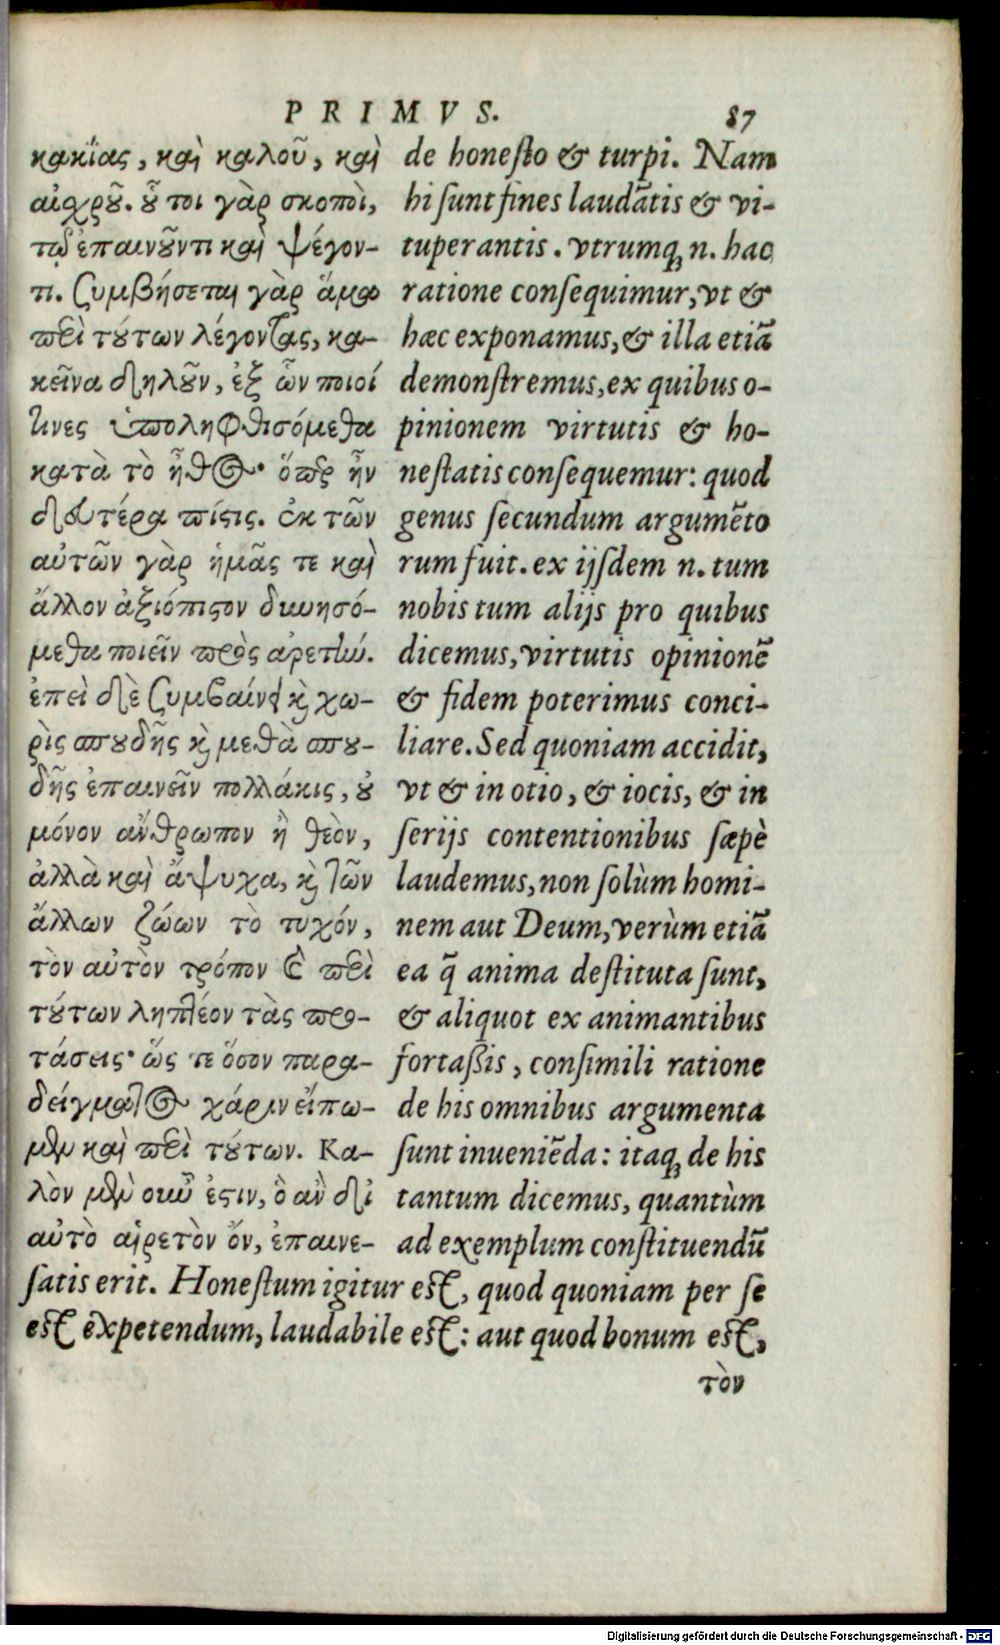 PRIMVS. 87
κακίας, καὶ καλοῦ, καὶ
αἰχροῦ. οὗτοι γὰρ σκοποὶ,
τῷ ἐπαινοῦντι καὶ ψέγον-
τι. ζυμβήσεται γὰρ ἅμα
περὶ τούτων λέγοντας, κα-
κεῖνα δηλοῦν, ἐξ ὧν ποιοί
τινες ὑποληφθισόμεθα
κατὰ τὸ ἦθος· ὅπερ ἦν
δευτέρα πίστις. ἐκ τῶν
αὐτῶν γὰρ ἡμᾶς τε καὶ
ἄλλον ἀξιόπιστον δυνησό-
μεθα ποιεῖν πρὸς ἀρετήν.
ἐπεὶ δὲ ζυμβαίνει καὶ χω-
ρὶς σπουδῆς καὶ μεθὰ σπου-
δῆς ἐπαινεῖν πολλάκις, οὐ
μόνον ἄνθρωπον ἢ θεὸν,
ἀλλὰ καὶ ἄψυχα, καὶ τῶν
ἄλλων ζώων τὸ τυχόν,
τὸν αὐτὸν τρόπον καὶ περὶ
τούτων ληπτέον τὰς προ-
τάσεις· ὥς τε ὅσον παρα-
δείγματος χάριν εἴπω-
μεν καὶ περὶ τούτων. Κα-
λὸν μὲν οὖν ἐστιν, ὃ ἂν δι
αὐτὸ αἱρετὸν ὄν, ἐπαινε-
de honeſto & turpi. Nam
hi ſunt fines laudātis & vi-
tuperantis. vtrumq; n. hac
ratione conſequimur, vt &
hæc exponamus, & illa etiā
demonſtremus, ex quibus o-
pinionem virtutis & ho-
neſtatis conſequemur: quod
genus ſecundum argumēto
rum fuit. ex ijſdem n. tum
nobis tum alijs pro quibus
dicemus, virtutis opinionē
& fidem poterimus conci-
liare. Sed quoniam accidit,
vt & in otio, & iocis, & in
ſerijs contentionibus ſæpè
laudemus, non ſolùm homi-
nem aut Deum, verùm etiā
ea q̄ anima deſtituta ſunt,
& aliquot ex animantibus
fortaßis, conſimili ratione
de his omnibus argumenta
ſunt inueniēda: itaq; de his
tantum dicemus, quantùm
ad exemplum conſtituendū
ſatis erit. Honeſtum igitur eſt, quod quoniam per ſe
eſt expetendum, laudabile eſt: aut quod bonum eſt,
τὸν
Digitalisierung gefördert durch die Deutsche Forschungsgemeinschaft - DFG